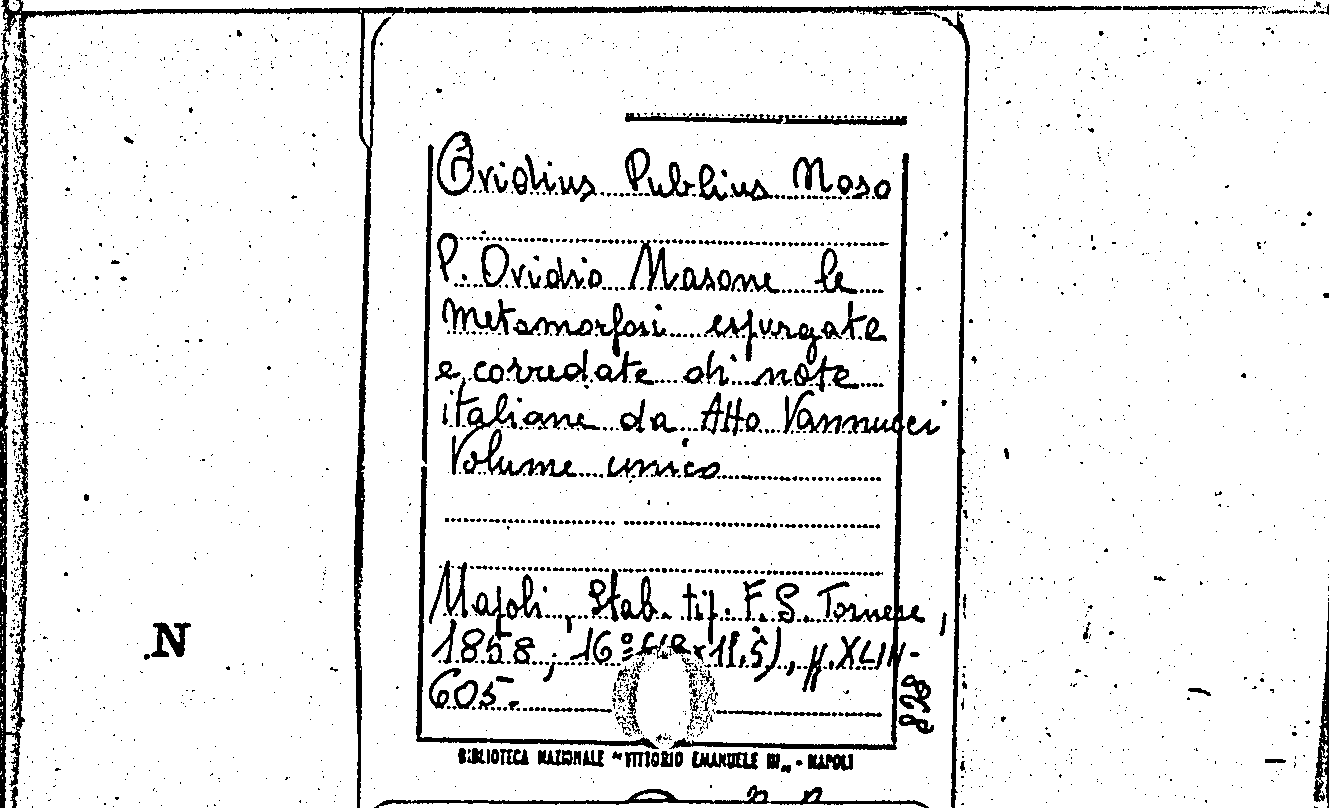 Ovidius Publius Naso
P. Ovidio Nasone le
metamorfosi espurgate
e corredate di note
italiane da Atto Vannucci
Volume unico
Napoli, Stab. tip. F. S. Tornese,
1858; 16º (18x11,5), pp. XLIII-
605.
828
BIBLIOTECA NAZIONALE "VITTORIO EMANUELE III" - NAPOLI
N